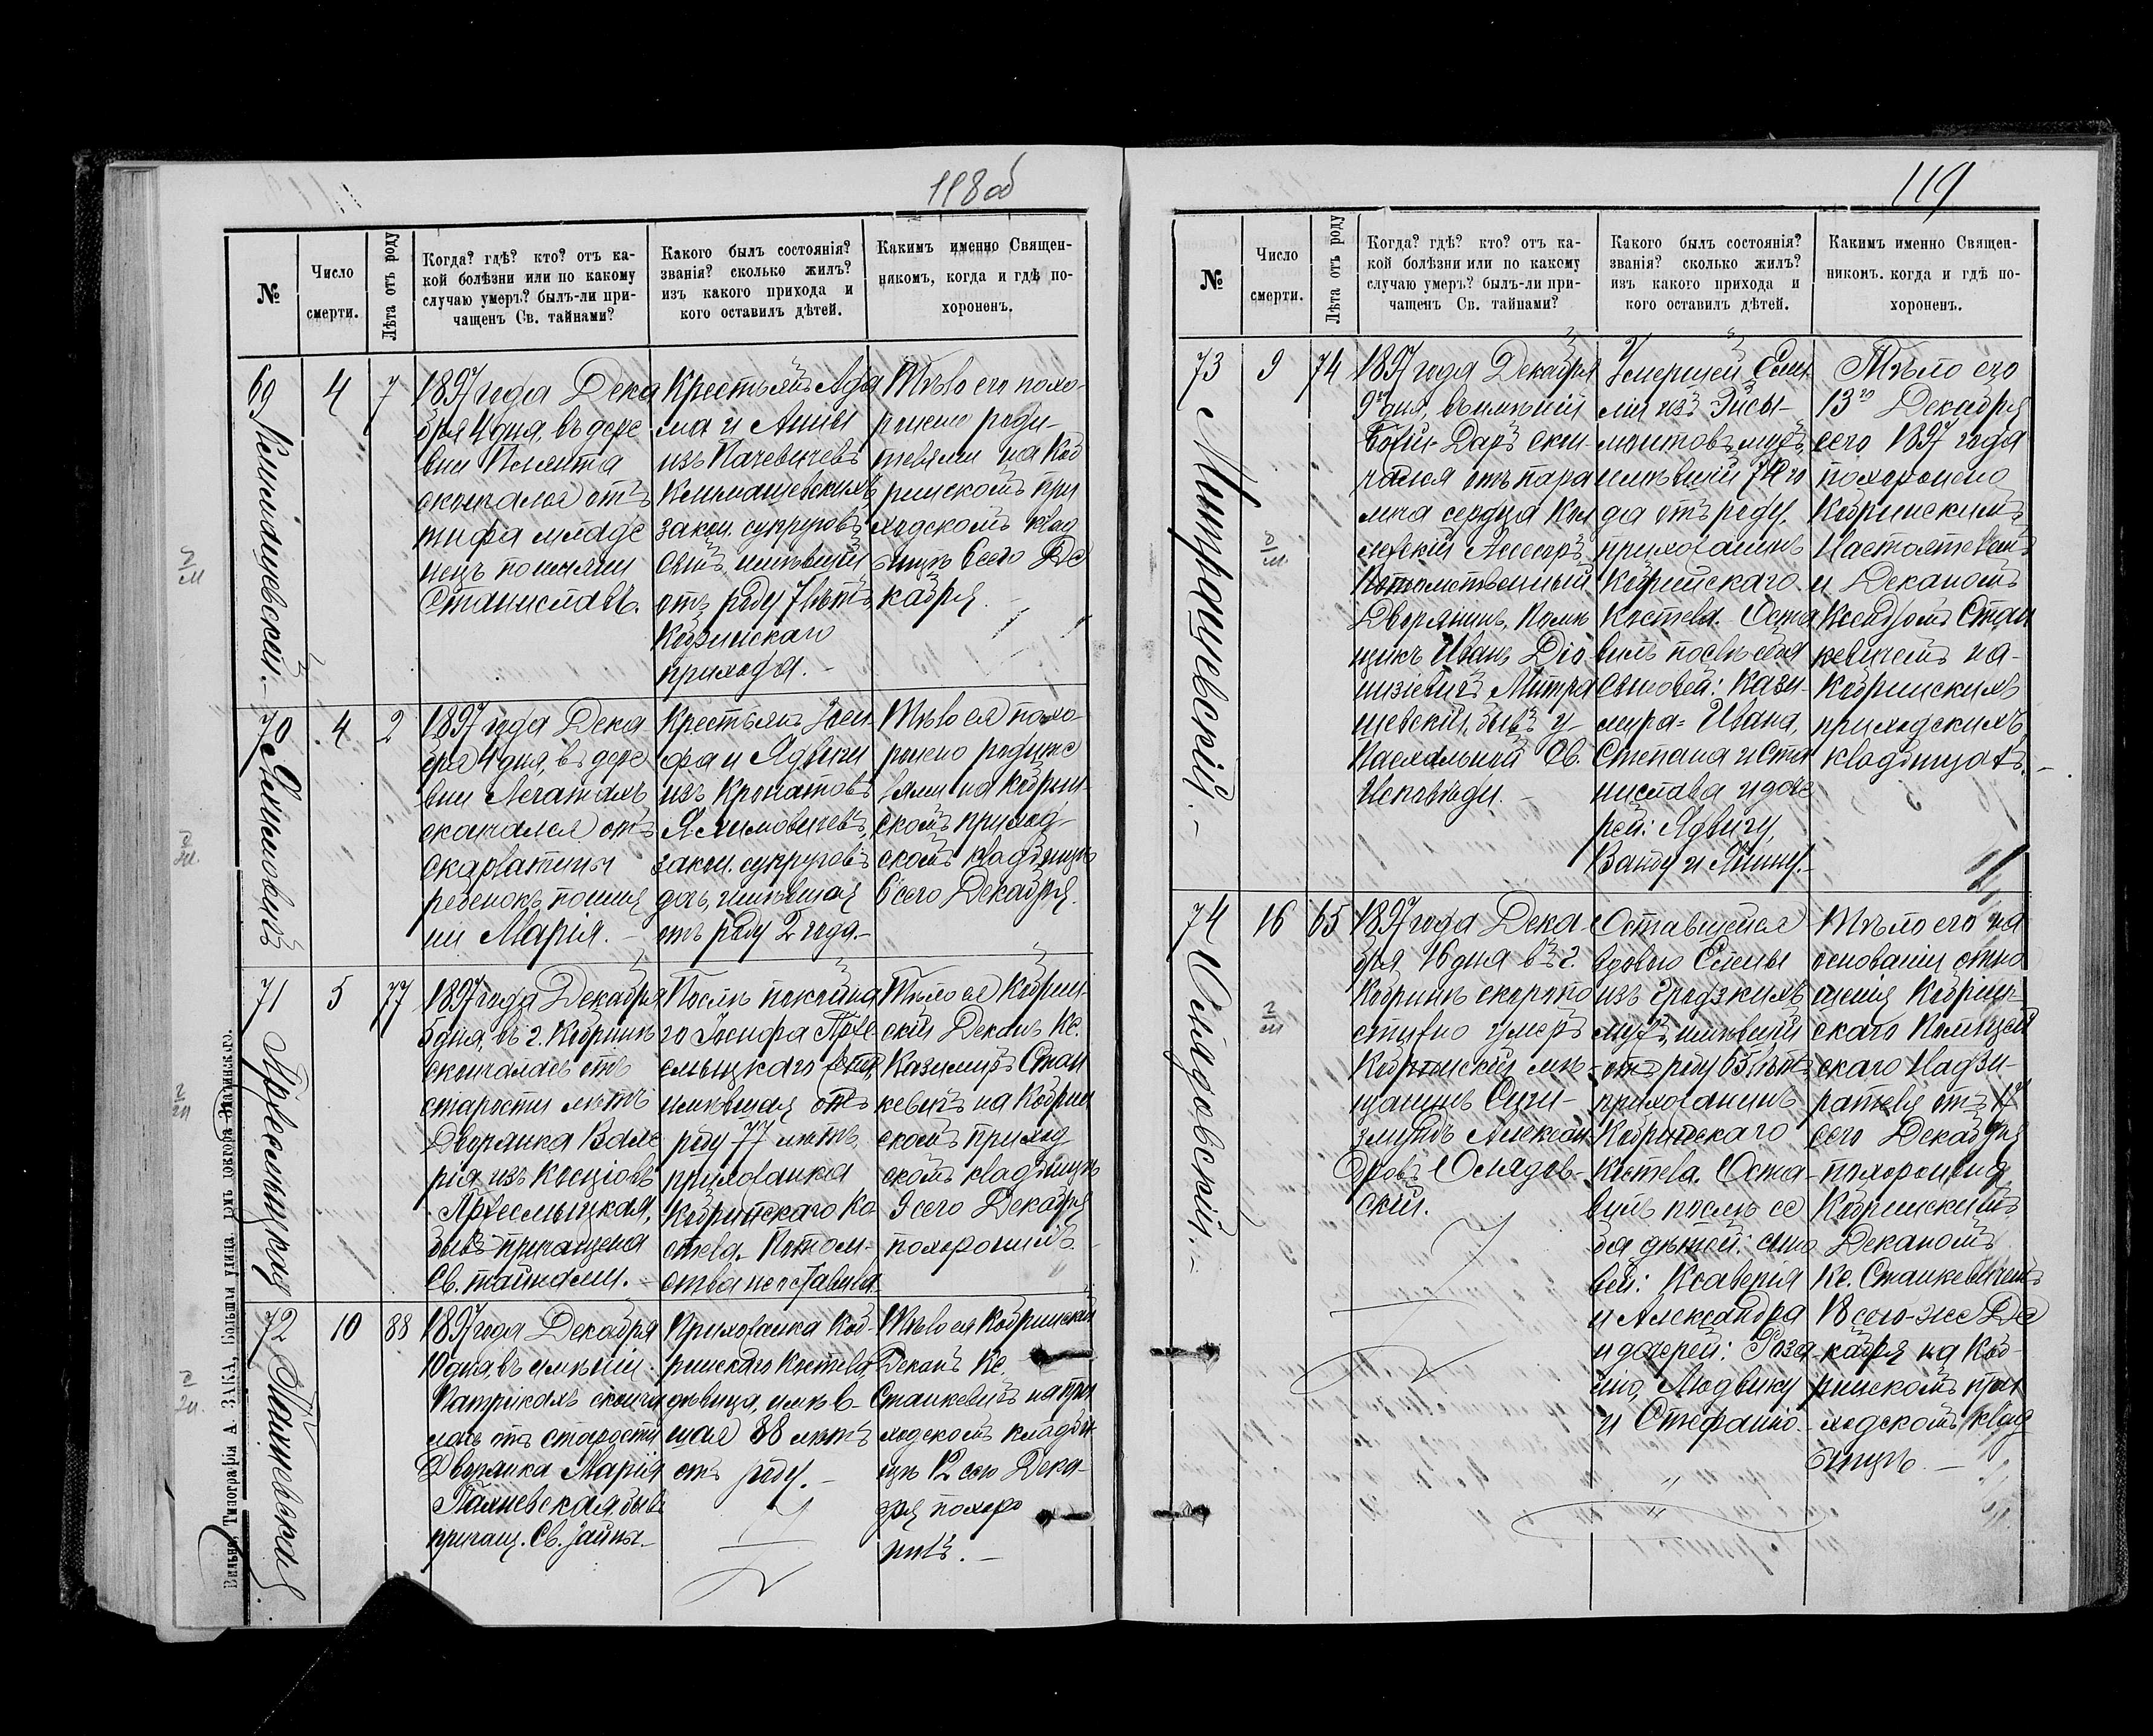 118 об
№
Число
смерти.
Лѣта отъ роду
Когда? гдѣ? кто? отъ ка-
кой болѣзни или по какому
случаю умеръ? былъ-ли при-
чащенъ Св. тайнами?
Какого былъ состоянія?
званія? сколько жилъ?
изъ какого прихода и
кого оставилъ дѣтей.
Какимъ именно Священ-
никомъ, когда и гдѣ по-
хороненъ.
69
Климашевскій.
4
7
1897 года Дека
бря 4 дня, въ дере
вни
скончался отъ
тифа младе
нецъ по имени
Станиславъ.
Крестьянъ Ада
ма и Анны
изъ Пачевичевъ
Климашевскихъ
закон. супруговъ
сынъ, имѣвшій
отъ роду 7 лѣтъ
Кобринскаго
прихода.
Тѣло его похо-
ронено роди-
телями на Коб
ринскомъ при
ходскомъ клад
бищѣ 6 сего Де
кабря.
70
Якимовичъ
4
2
1897 года Дека-
бря 4 дня, въ дере
вни Легатахъ
скончался отъ
скарлатины
ребенокъ, по име
ни Марія.
Крестьянъ Іоси
фа и Ядвиги
изъ Кронатовъ
Якимовичевъ,
закон. супруговъ
дочь, имѣвшая
отъ роду 2 года.
Тѣло ея похо-
ронено родите
лями на Кобрин-
скомъ приход-
скомъ кладбищѣ
6 сего Декабря.
71
Пржесмыцкая
5
77
1897 года Декабря
5 дня, въ г. Кобринѣ
скончалась отъ
старости лѣтъ
Дворянка Вале
рія изъ Косціовъ
Пржесмыцкая,
бывъ причащена
Св. тайнами.
Послѣ покойна
го Іосифа Прже
смыцкаго жена,
имѣвшая отъ
роду 77 лѣтъ
прихожанка
Кобринскаго Ко
стела. Потом-
ства не оставила
Тѣло ея Кобрин-
скій Деканъ Кс.
Казимиръ Стан
кевичъ на Кобрин
скомъ приход
скомъ кладбищѣ
9 сего Декабря
похоронилъ.
72
Пахневская
10
88
1897 года Декабря
10 дня, въ имѣніи
Патрикахъ сконча
лась отъ старости
Дворянка Марія
Пахневская, бывъ
причащ. Св. Тайнъ.
Прихожанка Коб-
ринскаго Костела,
дѣвица, имѣв-
шая 88 лѣтъ
отъ роду.
Тѣло ея Кобринскій
Деканъ Кс.
Станкевичъ на при
ходскомъ кладби
щѣ 12 сего Дека-
бря похоро
нилъ.
Вильна, Типографія А. ЗАКА, Большая улица, домъ доктора Загринскаго.
119
№
Число
смерти.
Лѣта отъ роду
Когда? гдѣ? кто? отъ ка-
кой болѣзни или по какому
случаю умеръ? былъ-ли при-
чащенъ Св. тайнами?
Какого былъ состоянія?
званія? сколько жилъ?
изъ какого прихода и
кого оставилъ дѣтей.
Какимъ именно Священ-
никомъ. когда и гдѣ по-
хороненъ.
73
Митрашевскій.
9
74
1897 года Декабря
9го дня, въ имѣніи
Божій-Даръ скон
чался отъ пара
лича сердца Кол
лежскій Асесоръ
Потомственный
Дворянинъ, Помѣ
щикъ Иванъ Діо
низіевичъ Митра
шевскій, бывъ у
Пасхальной Св.
Исповѣди.
Умершей Еми-
ліи изъ
мужъ,
имѣвшій 74 го
да отъ роду,
прихожанинъ
Кобринскаго
Костела. Оста
вилъ послѣ себя
Сыновей: Кази-
мира, Ивана,
Степана и Ста
нислава и доче
рей: Ядвигу,
Ванду и Анну.
Тѣло его
13го Декабря
сего 1897 года
похоронено
Кобринскимъ
Настоятелемъ
и Деканомъ
Ксендзомъ Стан
кевичемъ на
Кобринскихъ
приходскихъ
кладбищахъ.
74
Осмдовскій.
16
65
1897 года Дека-
бря 16 дня въ г.
Кобринѣ скоропо
стижно умеръ
Кобринскій мѣ-
щанинъ Сиги-
змундъ Алексан
дровъ
скій.
Оставшейся
вдовою Елены
изъ Гродзкихъ
мужъ, имѣвшій
отъ роду 65 лѣтъ
прихожанинъ
Кобринскаго
Костела. Оста-
вилъ послѣ се
бя дѣтей: сыно
вей: Ксаверія
и Александра
и дочерей: Роза
лію, Людвику
и Стефанію.
Тѣло его на
основаніи отно
шенія Кобрин-
скаго Полицей
скаго Надзи-
рателя отъ 17
сего Декабря
похоронено
Кобринскимъ
Деканомъ
Кс. Станкевичемъ
18 сего-же Де
кабря на Коб-
ринскомъ при
ходскомъ клад
бищѣ.